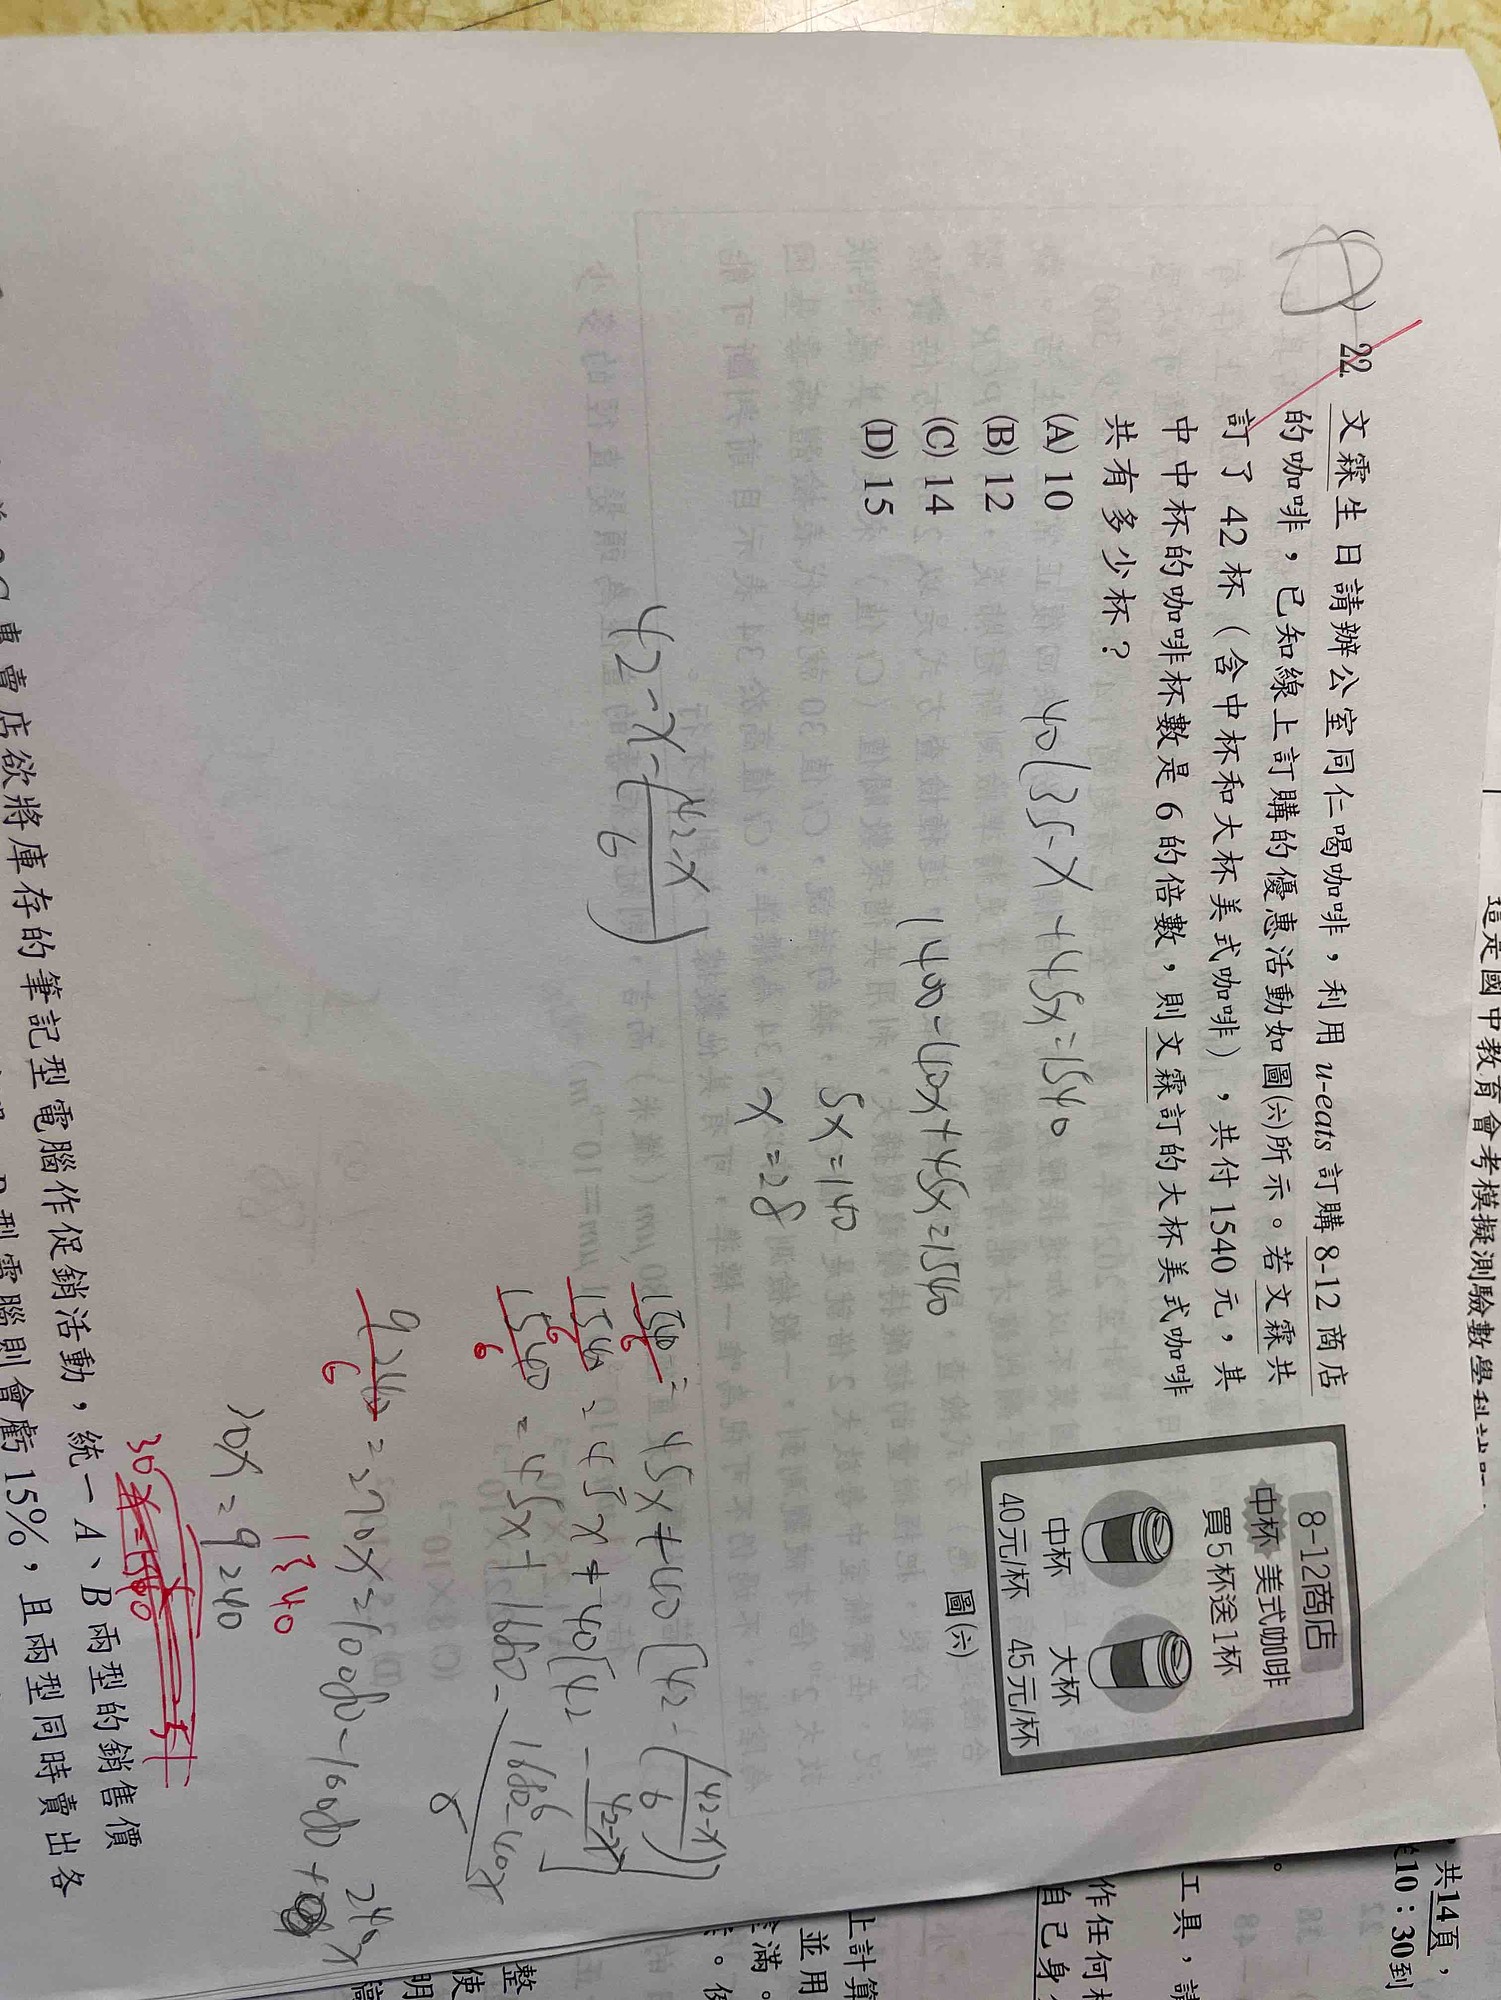 這是國中教育會考模擬測驗數學科
22. 文霖生日請辦公室同仁喝咖啡，利用 u-eats 訂購 8-12 商店
的咖啡，已知線上訂購的優惠活動如圖(六)所示。若文霖共
訂了 42 杯（含中杯和大杯美式咖啡），共付 1540 元，其
中中杯的咖啡杯數是 6 的倍數，則文霖訂的大杯美式咖啡
共有多少杯？
(A) 10
(B) 12
(C) 14
(D) 15
8-12商店
中杯 美式咖啡
買5杯送1杯
中杯 大杯
40元/杯 45元/杯
圖(六)
40(35-x+45x=1540
1400-40x+45x=1540
5x=140
x=28
42-x-(42-x/6)
1540=45x+40[42-(42-x/6)]
1540=45x+40[42-42-x/6]
1540=45x+1680-1680-40x/6
9240=270x=10080-1680+240x
1540
30x=9240
專賣店欲將庫存的筆記型電腦作促銷活動，統一 A、B 兩型的銷售價
型電腦則會虧 15%，且兩型同時賣出各
共14頁，
10：30到
工具，請
作任何
自己身
上計算
並用